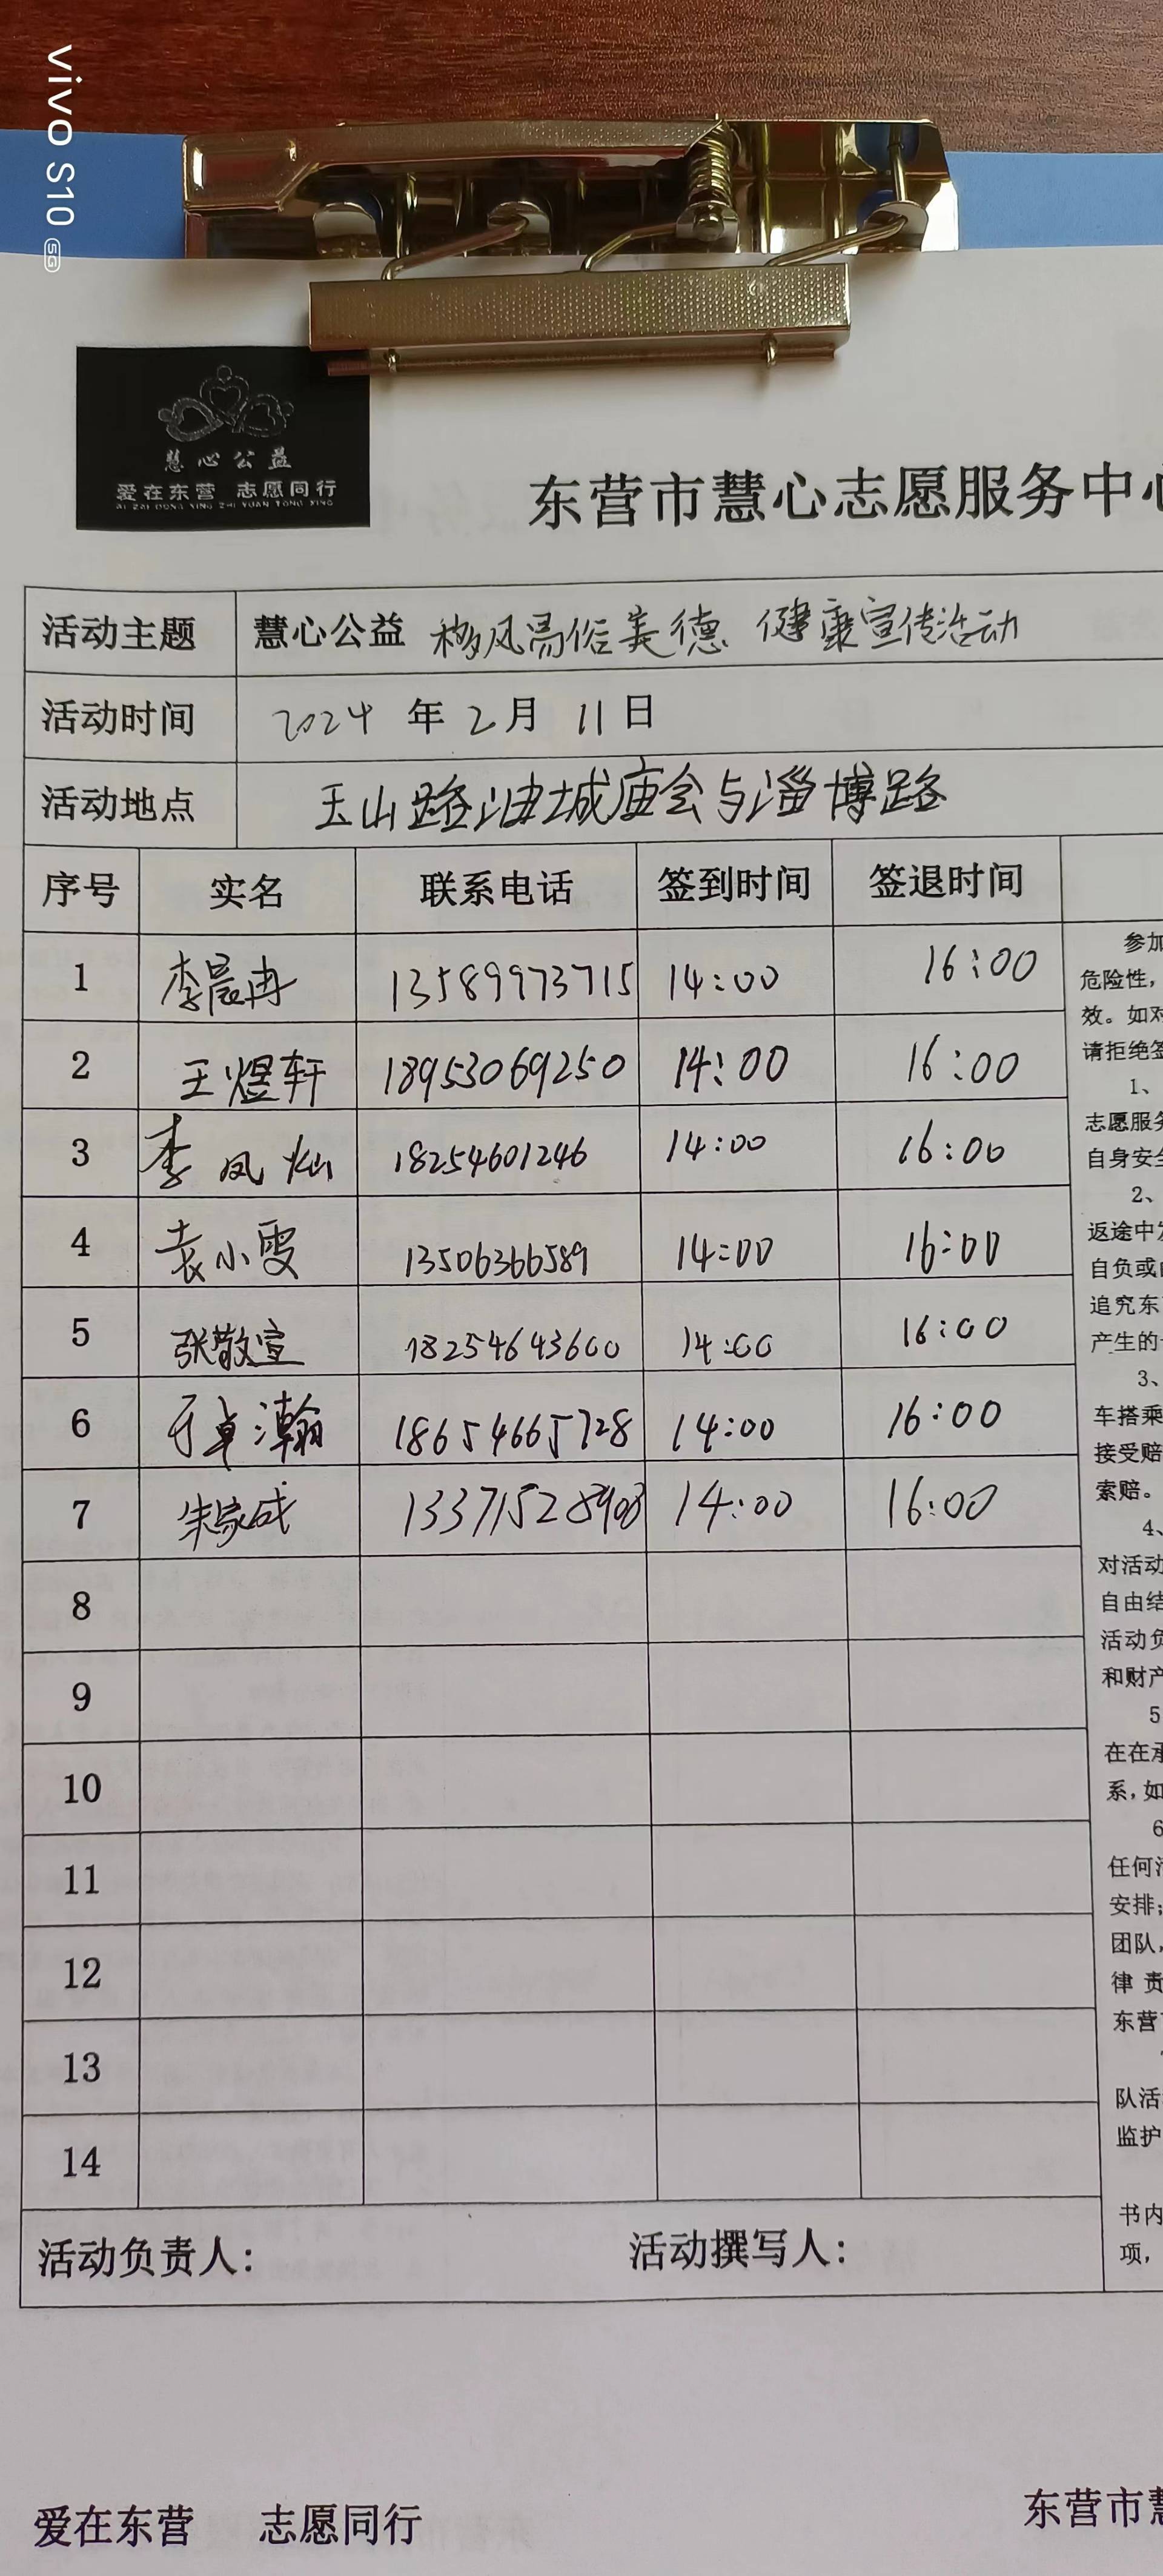 vivo S10 5G
慧心公益
爱在东营 志愿同行
AI ZAI DONG YING ZHI YUAN TONG XING
东营市慧心志愿服务中心
活动主题 慧心公益 移风易俗美德 健康宣传活动
活动时间 2024 年 2 月 11 日
活动地点 玉山路油城庙会与淄博路
序号 实名 联系电话 签到时间 签退时间
1 李晨冉 13589973715 14:00 16:00
2 王煜轩 18953069250 14:00 16:00
3 李凤灿 18254601246 14:00 16:00
4 袁小雯 13506366589 14:00 16:00
5 张敬宣 18254643600 14:00 16:00
6 于卓瀚 18654665728 14:00 16:00
7 朱家成 13371528908 14:00 16:00
8
9
10
11
12
13
14
参加
危险性,
效。如对
请拒绝签
1、
志愿服务
自身安全
2、
返途中发
自负或由
追究东
产生的一
3、
车搭乘
接受赔
索赔。
4、
对活动
自由结
活动负
和财产
5
在在承
系,如
6
任何活
安排;
团队,
律 责
东营
队活
监护
书内
项,
活动负责人: 活动撰写人:
爱在东营 志愿同行 东营市慧